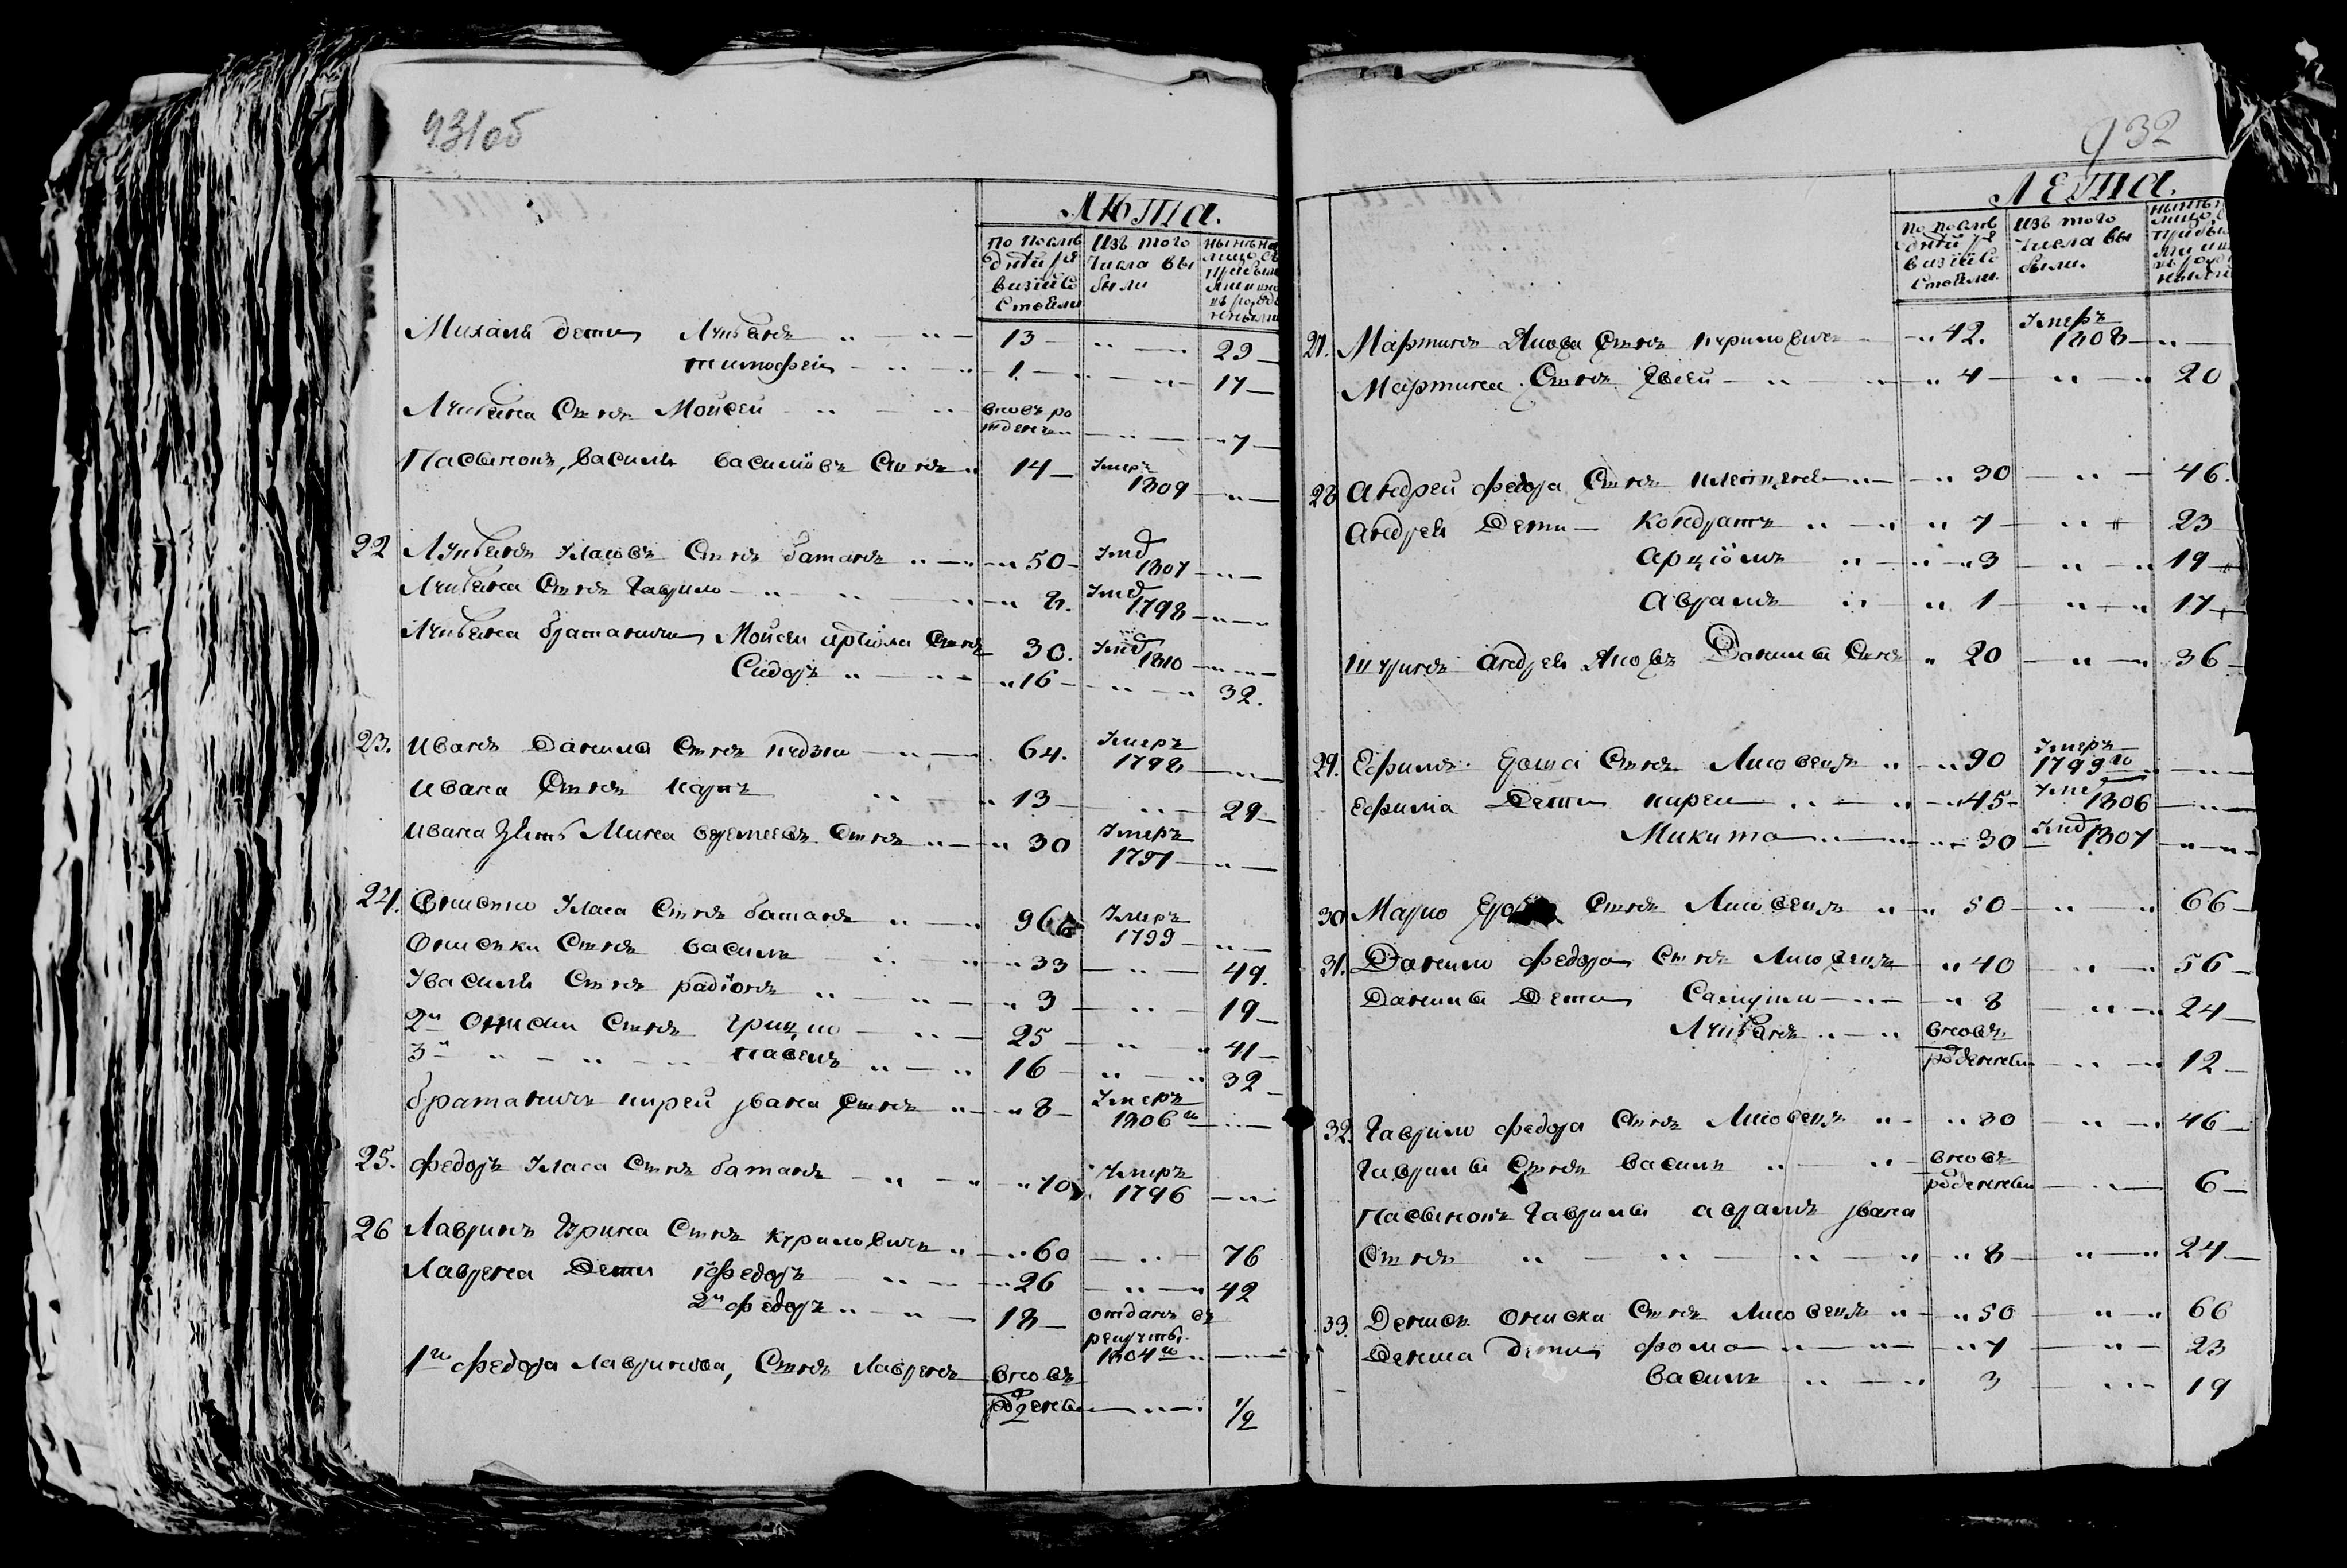 931об
ЛѢТА.
по послѣ
дней ре
визіи со
стояли
изъ того
числа вы
были
Михаля дети Лукьянъ 13 29
тимофей 1 17
Лукьяна Сынъ Мойсей вновь ро
жденъ 7
Пасынокъ, василь васильовъ Сынъ 14 Умеръ
1809
22 Лукьянъ Уласовъ Сынъ батанъ 50 Умер
1807
Лукьяна Сынъ Гаврило 8. Умер
1798
Лукьяна братаничи Мойсей Сынъ 30. Умер
1810
Сидоръ 16 32.
23. Иванъ Данила Сынъ 64. Умеръ
1798
Ивана Сынъ Карпъ 13 29
Ивана зять Мина Сынъ 30 Умеръ
1797
24. Онисько Уласа Сынъ батанъ 96 Умеръ
1799
Ониськи Сынъ василь 33 49.
Увасиля Сынъ радіонъ 3 19
2й Ониськи Сынъ Грицко 25 41
3й павелъ 16 32
братаничъ кирей Ивана Сынъ 8 Умеръ
1806го
25. федоръ Уласа Сынъ батанъ 10 Умеръ
1796
26 Лавринъ Сынъ куриловичъ 60 76
Лаврена Дети 1й федоръ 26 42
2й федоръ 18 отданъ въ
рекруты
1804го
1го федора Лавринова, Сынъ Лавренъ вновь
рожденный 1/2
932
ЛЕТА.
по послѣ
дней ре
визіи со
стояли
изъ того
числа вы
были.
27. Мартинъ Якова Сынъ куриловичъ 42. Умеръ
1808
Мартина Сынъ Евсей 4 20
28 Андрей федора Сынъ 30 46.
Андрея Дети Кондратъ 7 23
Арціомъ 3 19
Аврамъ 1 17
шуринъ Андрея Яковъ Данила Сынъ 20 36
29. Ефимъ Сынъ Лисовецъ 90 Умеръ
1799го
Ефима Дети кирей 45 Умер
1806
Микита 30 Умер 1807
30. Марко Сынъ Лисовецъ 50 66
31. Данило федора Сынъ Лисовецъ 40 56
Данила Дети Самуйло 8 24
Лукьянъ вновь
рожденный 12
32. Гаврило федора Сынъ Лисовецъ 30 46
Гаврила Сынъ василь вновь
рожденный 6
Пасынокъ Гаврила аврамъ Ивана
Сынъ 8 24
33. Денисъ Ониска Сынъ Лисовецъ 50 66
Дениса дети фома 7 23
василь 3 19